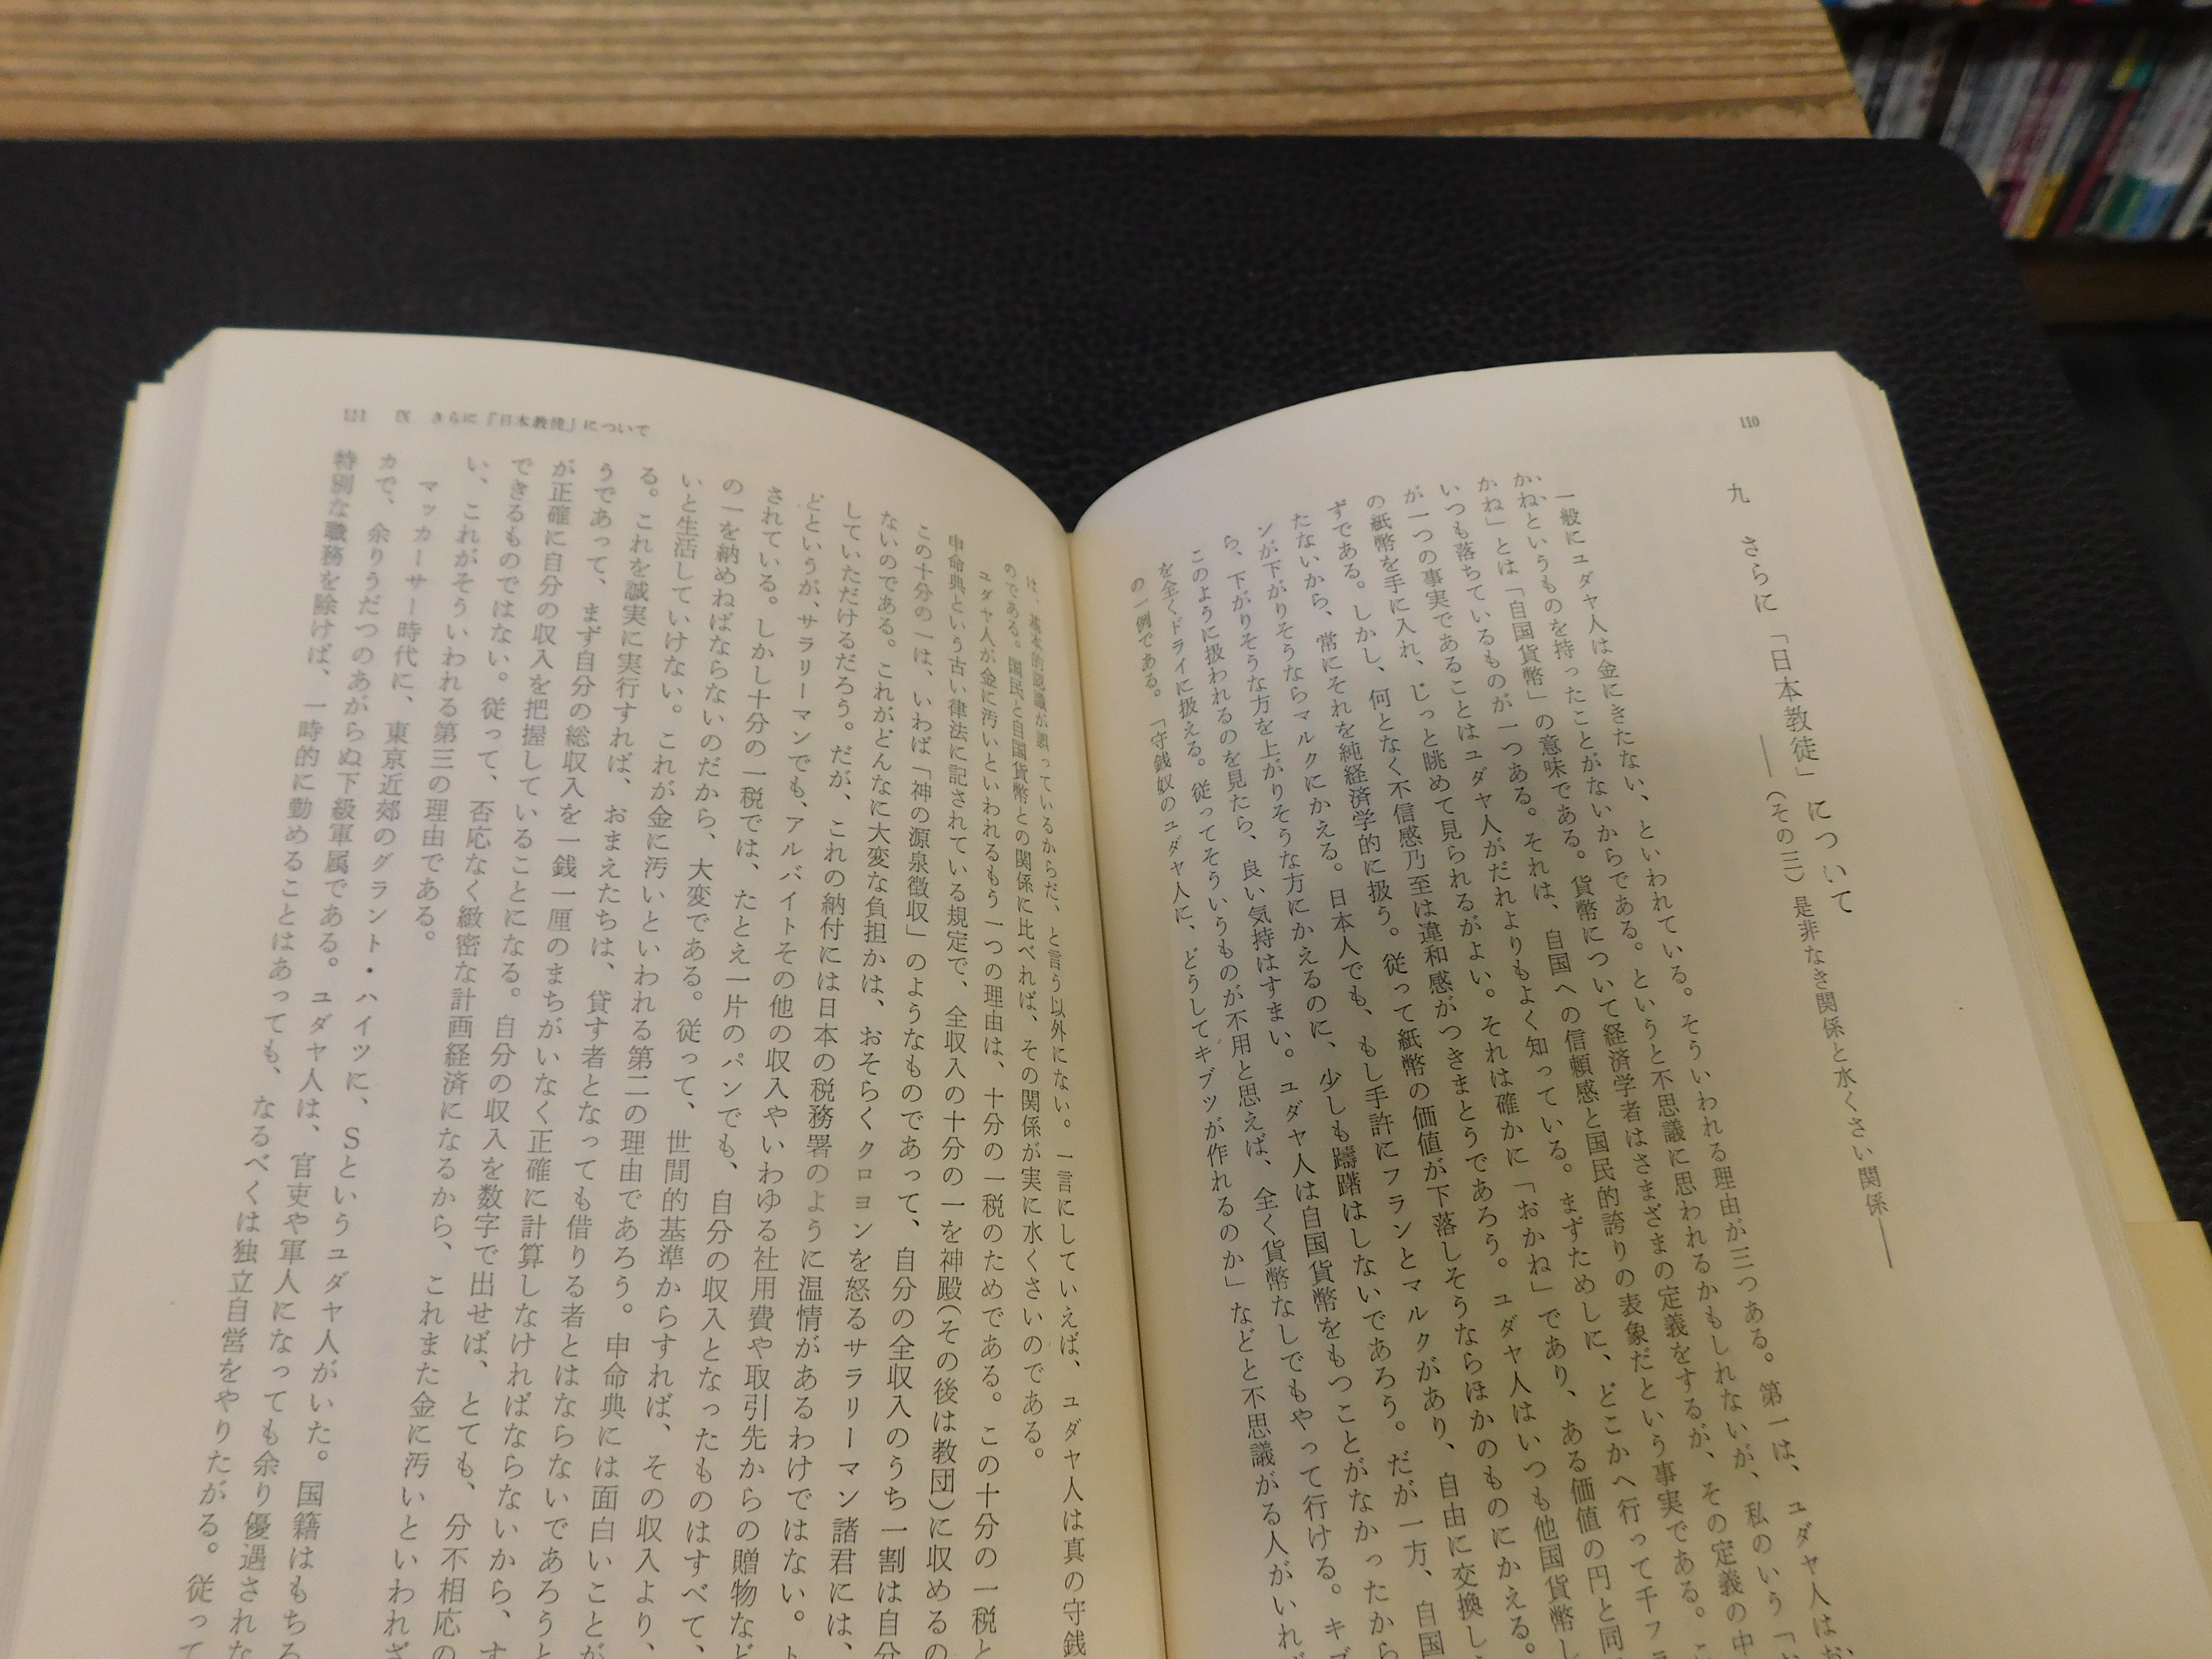 110
九 さらに「日本教徒」について
――(その三) 是非なき関係と水くさい関係――
一般にユダヤ人は金にきたない、といわれている。そういわれる理由が三つある。第一は、ユダヤ人はお
かねというものを持ったことがないからである。というと不思議に思われるかもしれないが、私のいう「お
かね」とは「自国貨幣」の意味である。貨幣について経済学者はさまざまの定義をするが、その定義の中
いつも落ちているものが一つある。それは、自国への信頼感と国民的誇りの表象だという事実である。こ
が一つの事実であることはユダヤ人がだれよりもよく知っている。まずためしに、どこかへ行って千フラ
の紙幣を手に入れ、じっと眺めて見られるがよい。それは確かに「おかね」であり、ある価値の円と同
ずである。しかし、何となく不信感乃至は違和感がつきまとうであろう。ユダヤ人はいつも他国貨幣し
たないから、常にそれを純経済学的に扱う。従って紙幣の価値が下落しそうならほかのものにかえる。
ンが下がりそうならマルクにかえる。日本人でも、もし手許にフランとマルクがあり、自由に交換し
ら、下がりそうな方を上がりそうな方にかえるのに、少しも躊躇はしないであろう。だが一方、自国
このように扱われるのを見たら、良い気持はすまい。ユダヤ人は自国貨幣をもつことがなかったから
を全くドライに扱える。従ってそういうものが不用と思えば、全く貨幣なしでもやって行ける。キブ
の一例である。「守銭奴のユダヤ人に、どうしてキブツが作れるのか」などと不思議がる人がいれば
111 Ⅸ さらに「日本教徒」について
は、基本的認識が誤っているからだ、と言う以外にない。一言にしていえば、ユダヤ人は真の守銭
のである。国民と自国貨幣との関係に比べれば、その関係が実に水くさいのである。
ユダヤ人が金に汚いといわれるもう一つの理由は、十分の一税のためである。この十分の一税と
申命典という古い律法に記されている規定で、全収入の十分の一を神殿(その後は教団)に収めるの
この十分の一は、いわば「神の源泉徴収」のようなものであって、自分の全収入のうち一割は自分
ないのである。これがどんなに大変な負担かは、おそらくクロヨンを怒るサラリーマン諸君には、
していただけるだろう。だが、これの納付には日本の税務署のように温情があるわけではない。ト
どというが、サラリーマンでも、アルバイトその他の収入やいわゆる社用費や取引先からの贈物など
されている。しかし十分の一税では、たとえ一片のパンでも、自分の収入となったものはすべて、
の一を納めねばならないのだから、大変である。従って、世間的基準からすれば、その収入より、
いと生活していけない。これが金に汚いといわれる第二の理由であろう。申命典には面白いことが
る。これを誠実に実行すれば、おまえたちは、貸す者となっても借りる者とはならないであろうと
うであって、まず自分の総収入を一銭一厘のまちがいなく正確に計算しなければならないから、す
が正確に自分の収入を把握していることになる。自分の収入を数字で出せば、とても、分不相応の
できるものではない。従って、否応なく緻密な計画経済になるから、これまた金に汚いといわれざ
い、これがそういわれる第三の理由である。
マッカーサー時代に、東京近郊のグラント・ハイツに、Sというユダヤ人がいた。国籍はもちろ
カで、余りうだつのあがらぬ下級軍属である。ユダヤ人は、官吏や軍人になっても余り優遇されな
特別な職務を除けば、一時的に勤めることはあっても、なるべくは独立自営をやりたがる。従って